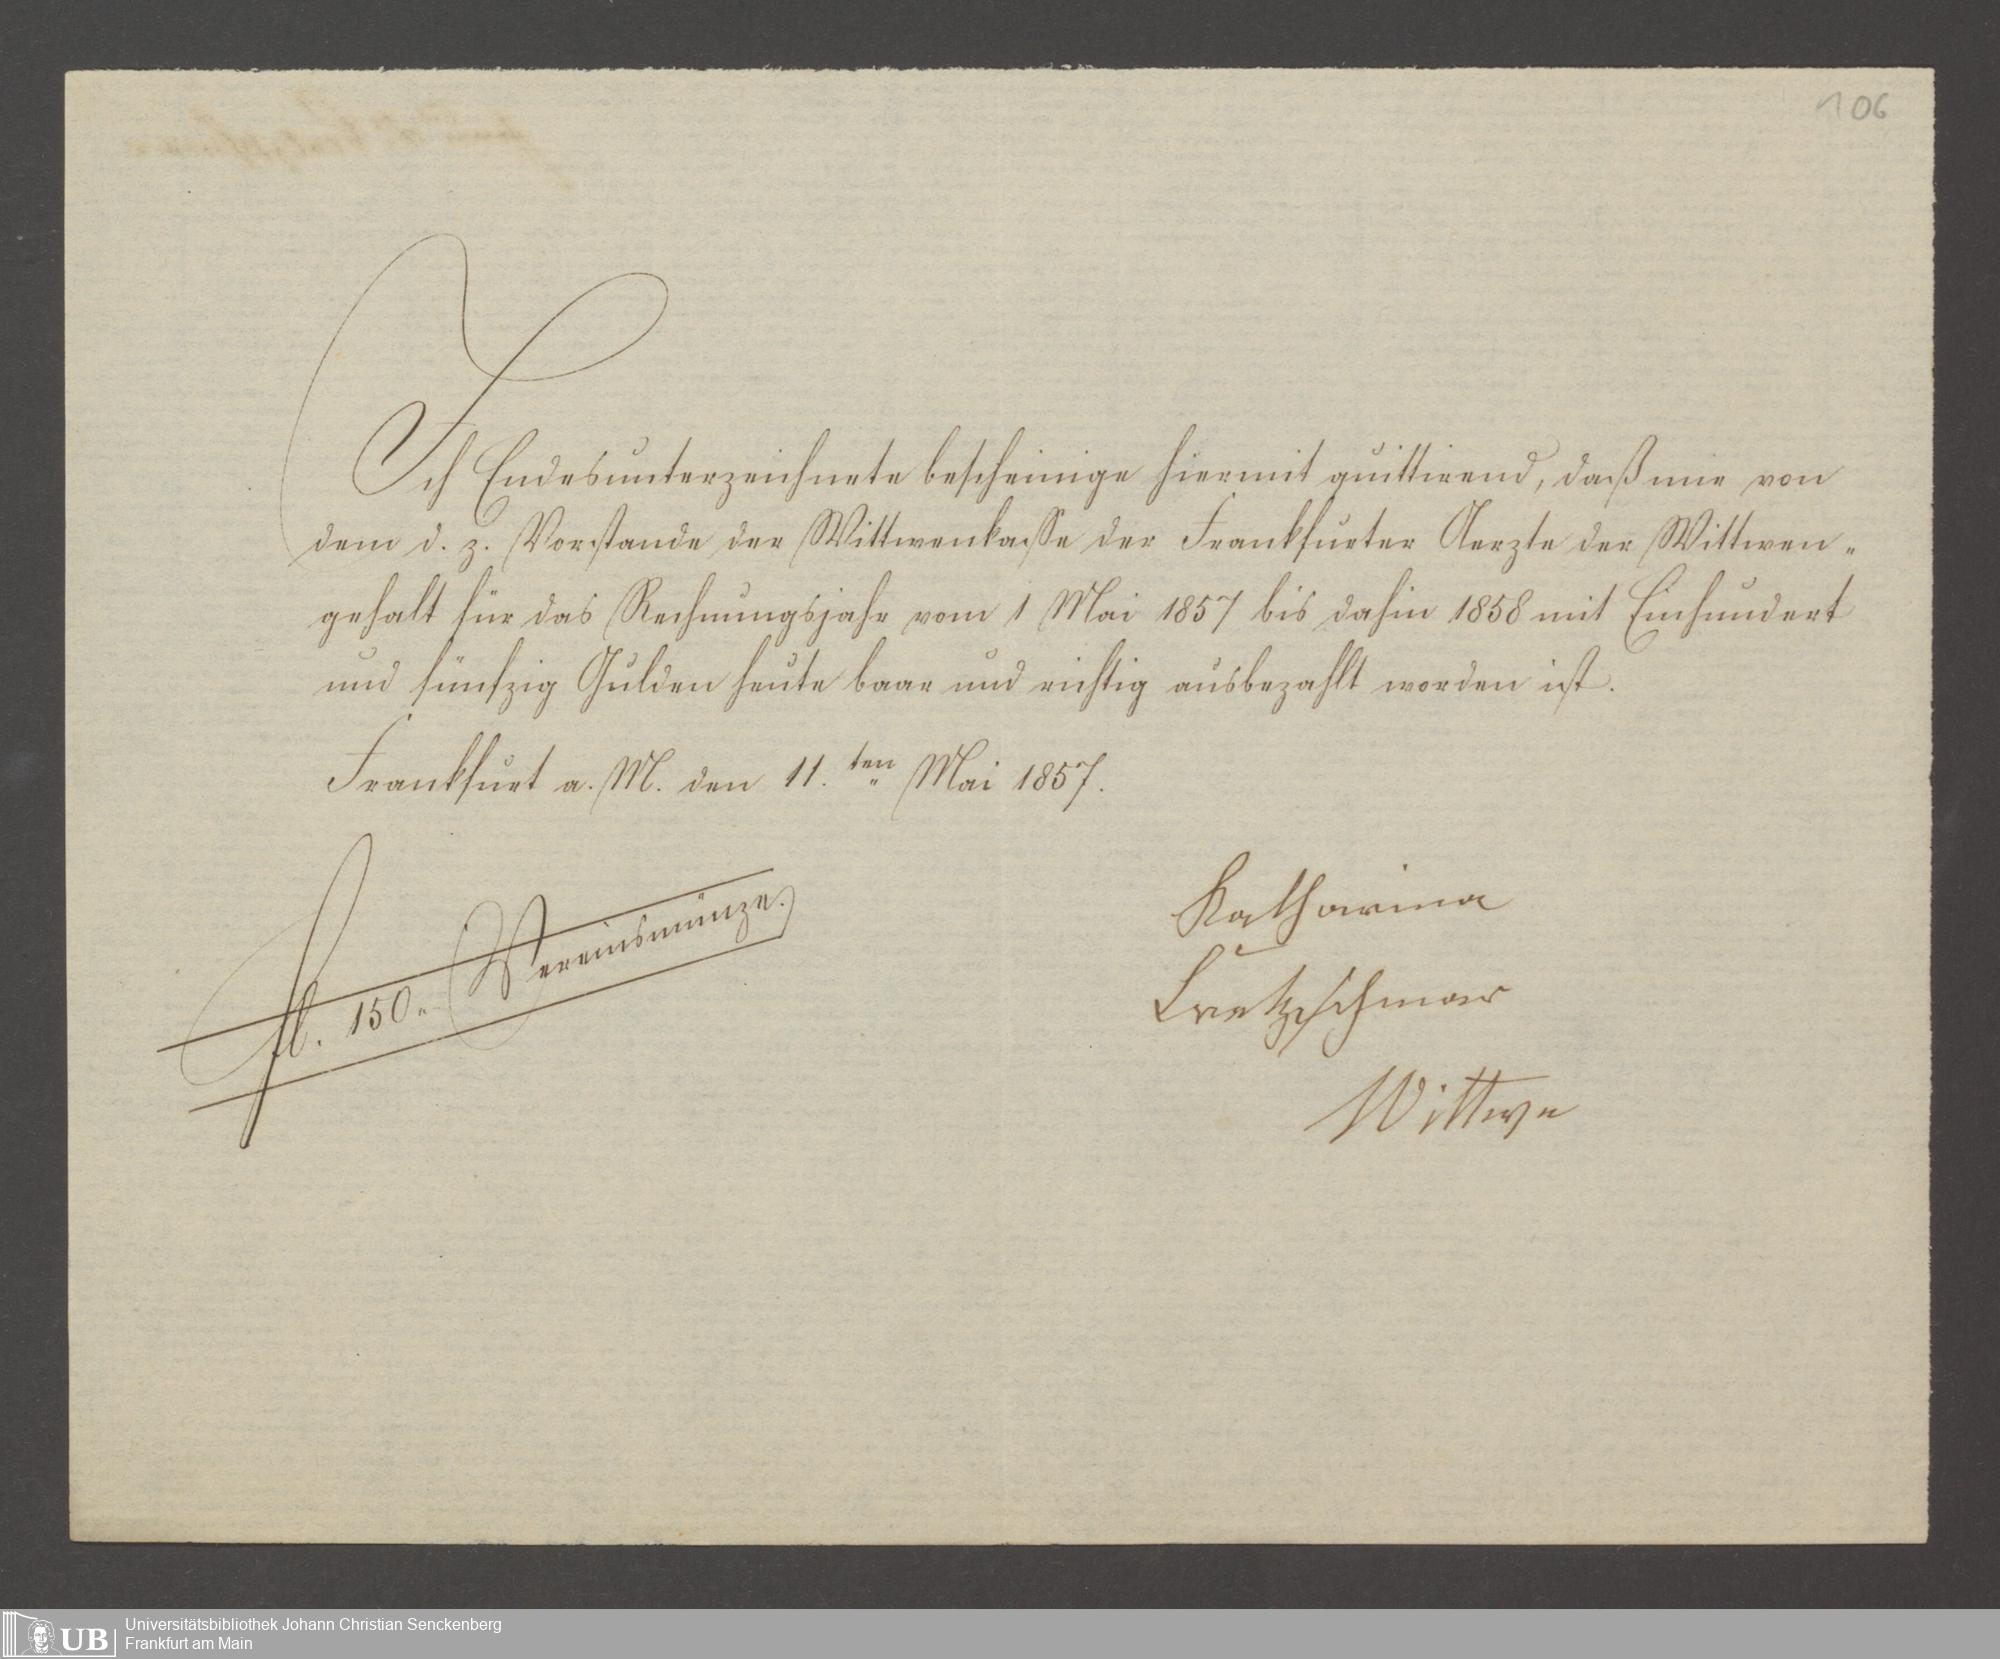 106
Ich Endesunterzeichnete bescheinige hiermit quittirend, daß mir von
dem d. z. Vorstande der Wittwenkasse der Frankfurter Aerzte der Wittwen-
gehalt für das Rechnungsjahr vom 1 Mai 1857 bis dahin 1858 mit Einhundert
und fünfzig Gulden heute baar und richtig ausbezahlt worden ist.
Frankfurt a. M. den 11.ten Mai 1857.
fl. 150.- Vereinsmünze.
Katharina
Kretzschmar
Wittwe
UB
Universitätsbibliothek Johann Christian Senckenberg
Frankfurt am Main